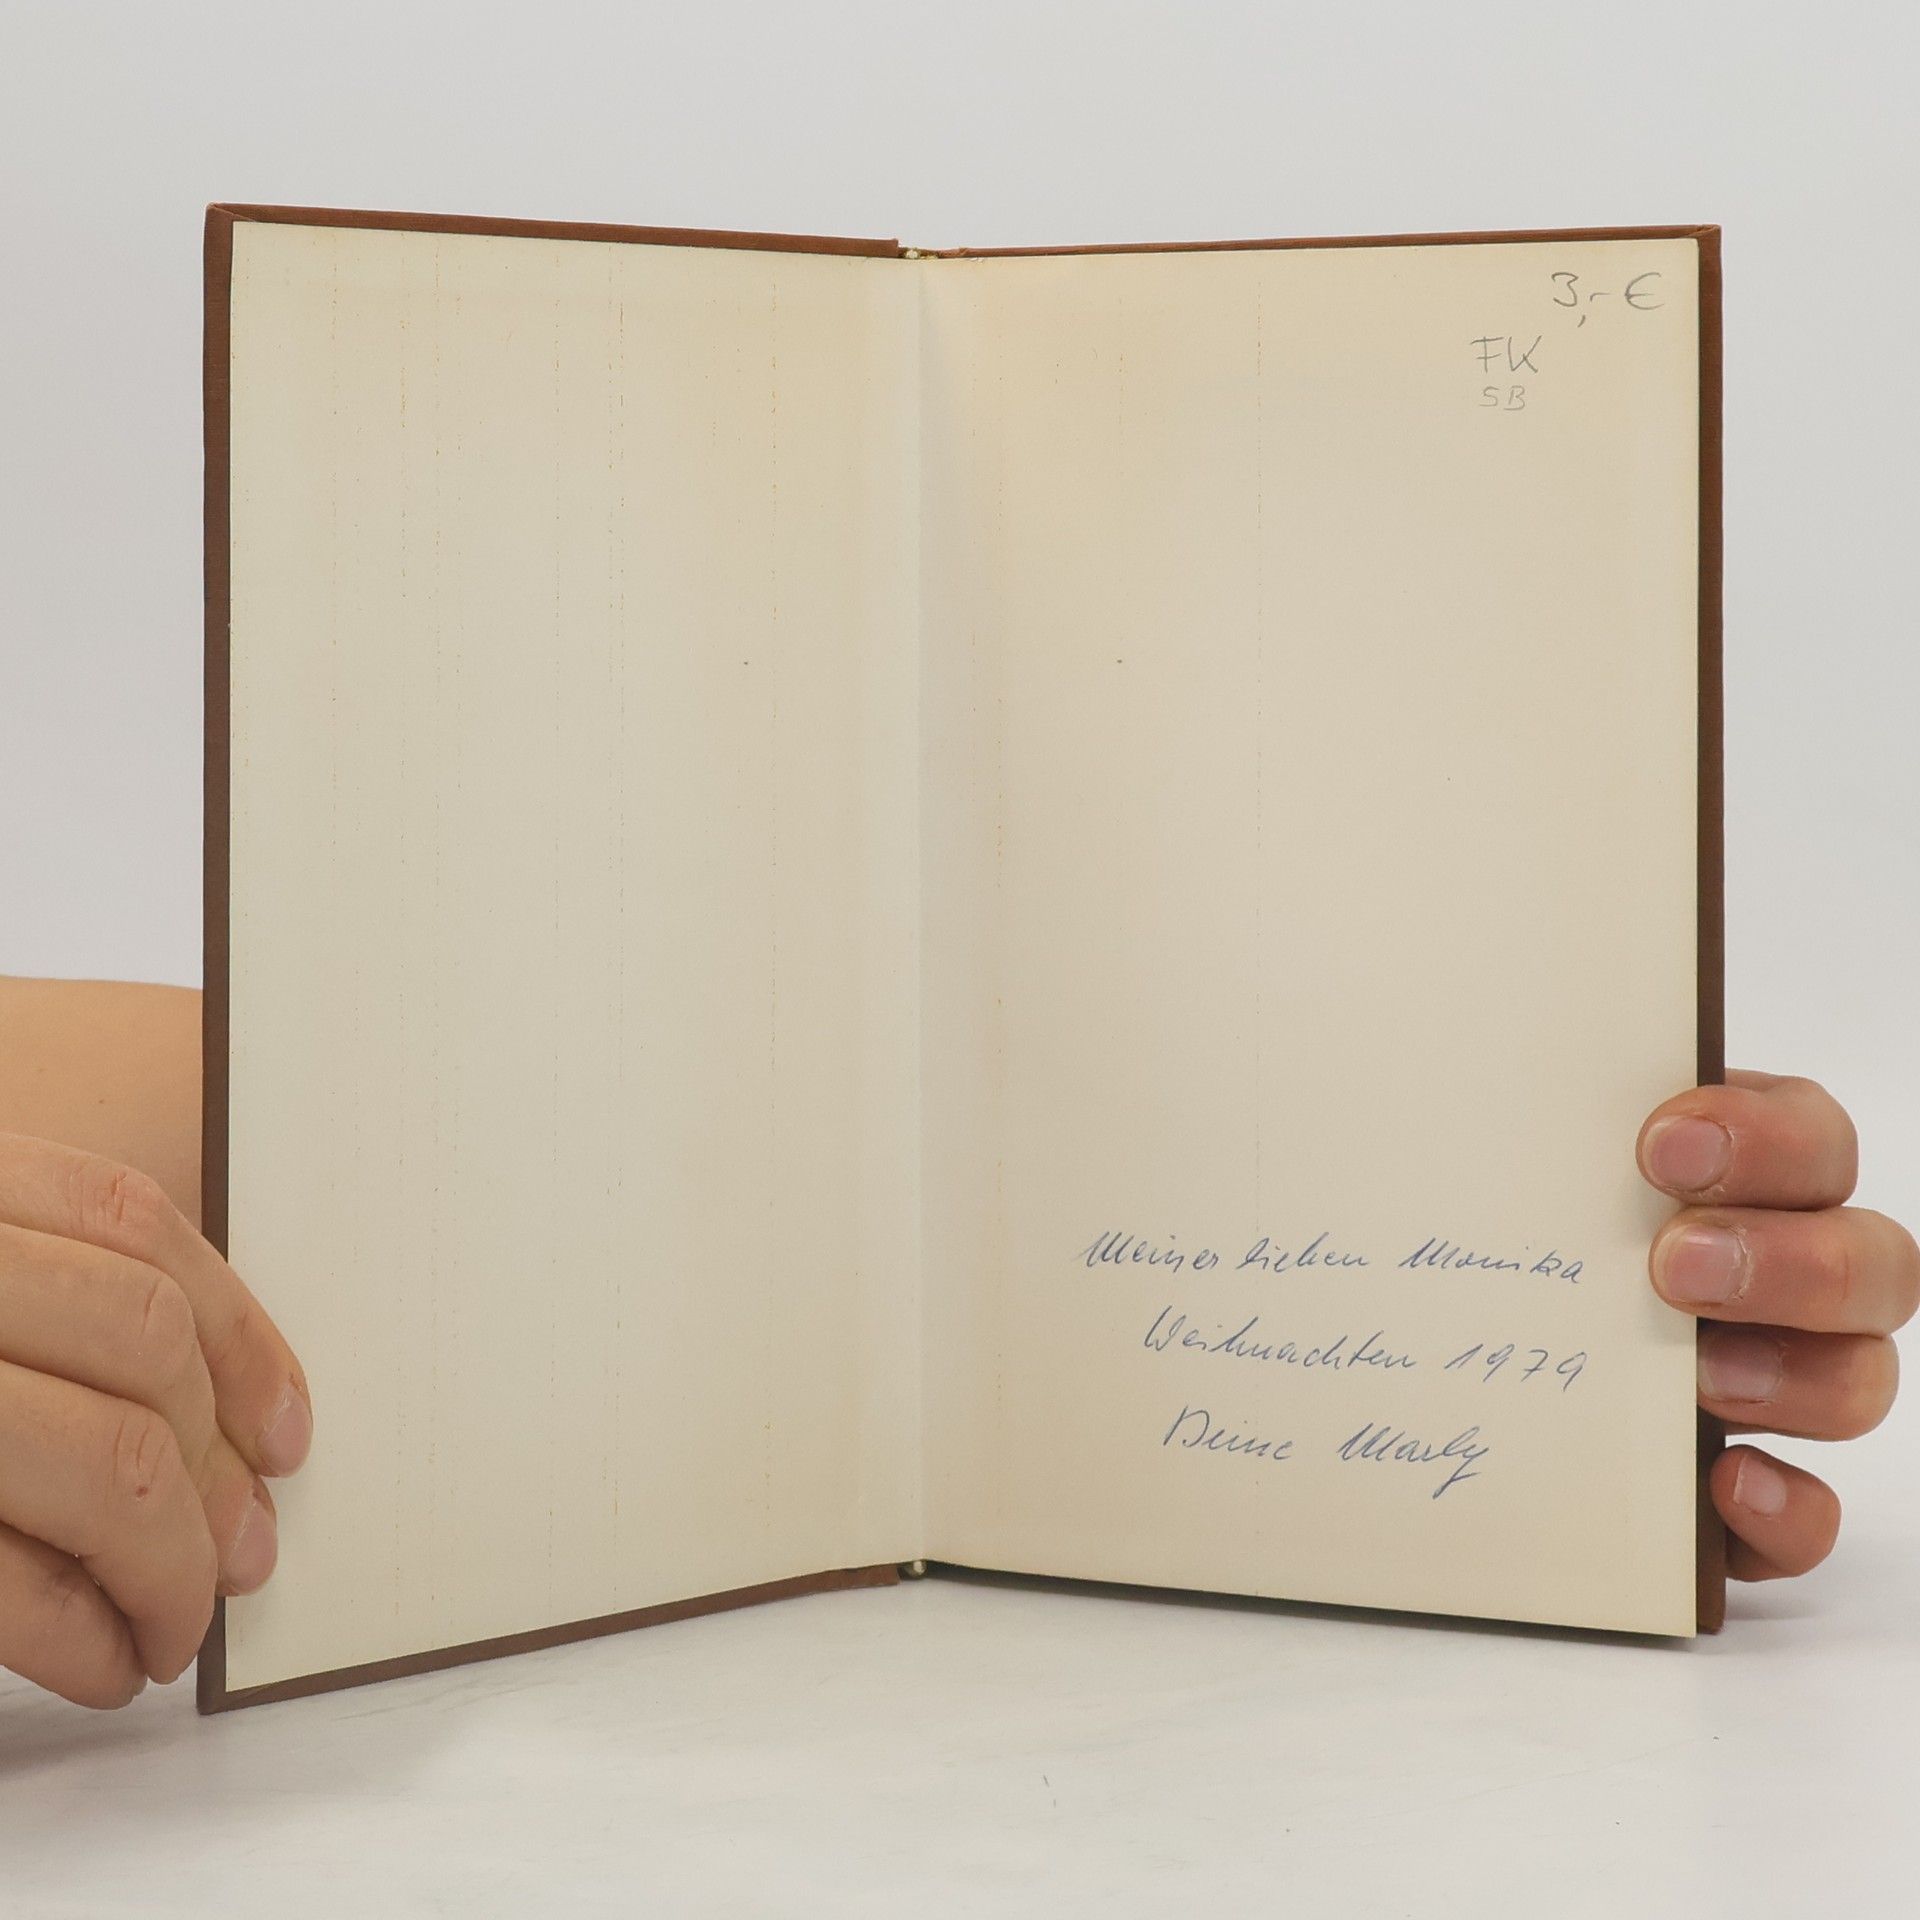 3,- €
FK
SB
Meiner lieben Monika
Weihnachten 1979
Deine Marly